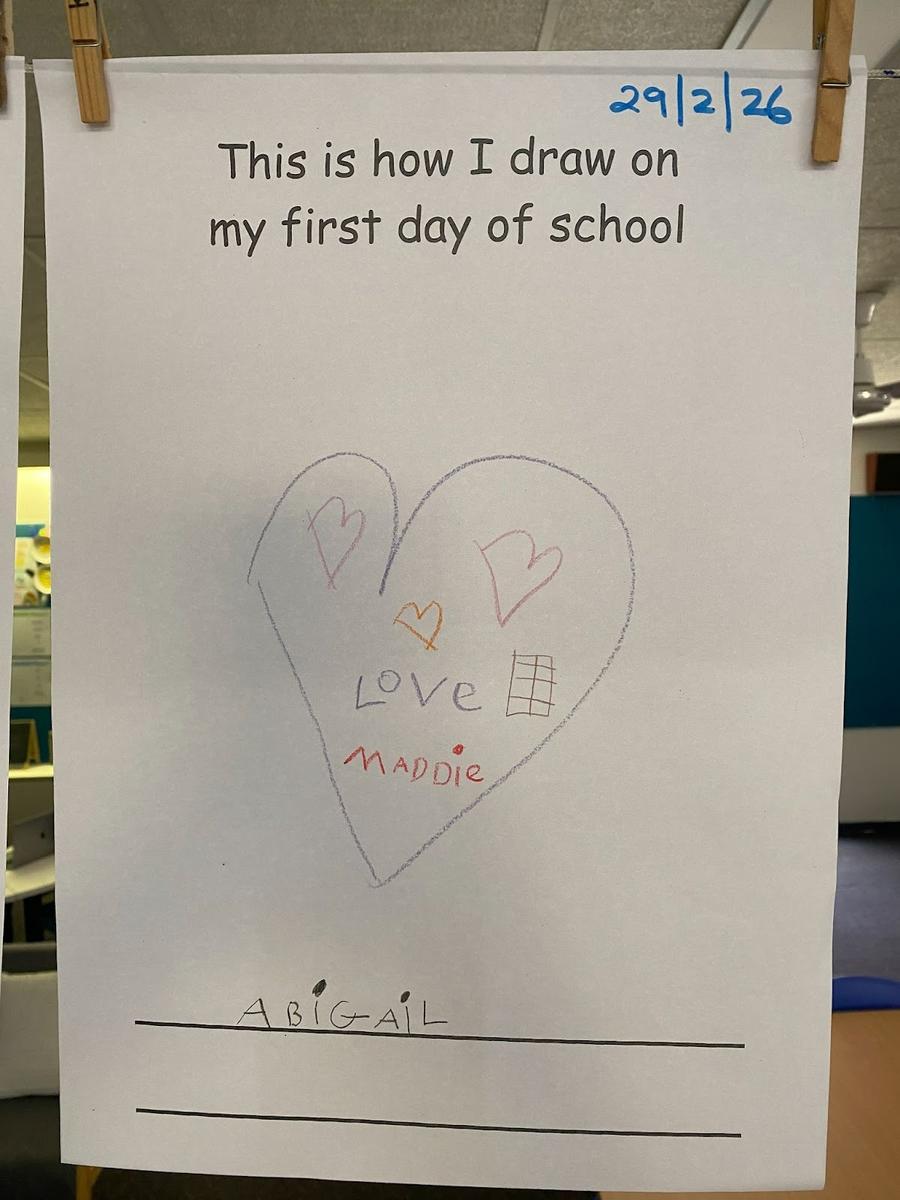 29/2/26
This is how I draw on
my first day of school
LOVe
MADDie
ABiGAiL